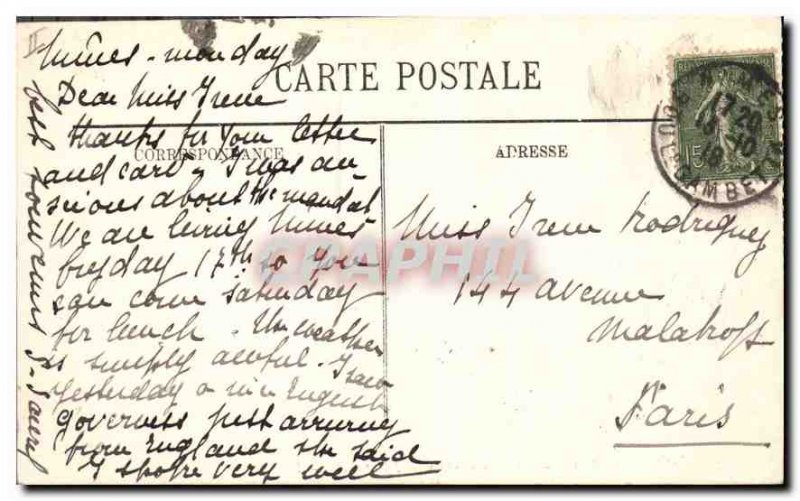 Nîmes - monday
CARTE POSTALE
Dear Miss Irene
thanks for your letter
CORRESPONDANCE
and card. I was an-
sious about the mandat
We are living Nimes
fryday 17th so you
can come saturday
for lunch. The weather
is simply awful. I saw
yesterday a nice English
governess just arruring
from England she said
I spoke very well
best souvenir S.
ADRESSE
Miss Irene Rodriguez
144 avenue
Malakoff
Paris
17 20
15
CHAPHIL